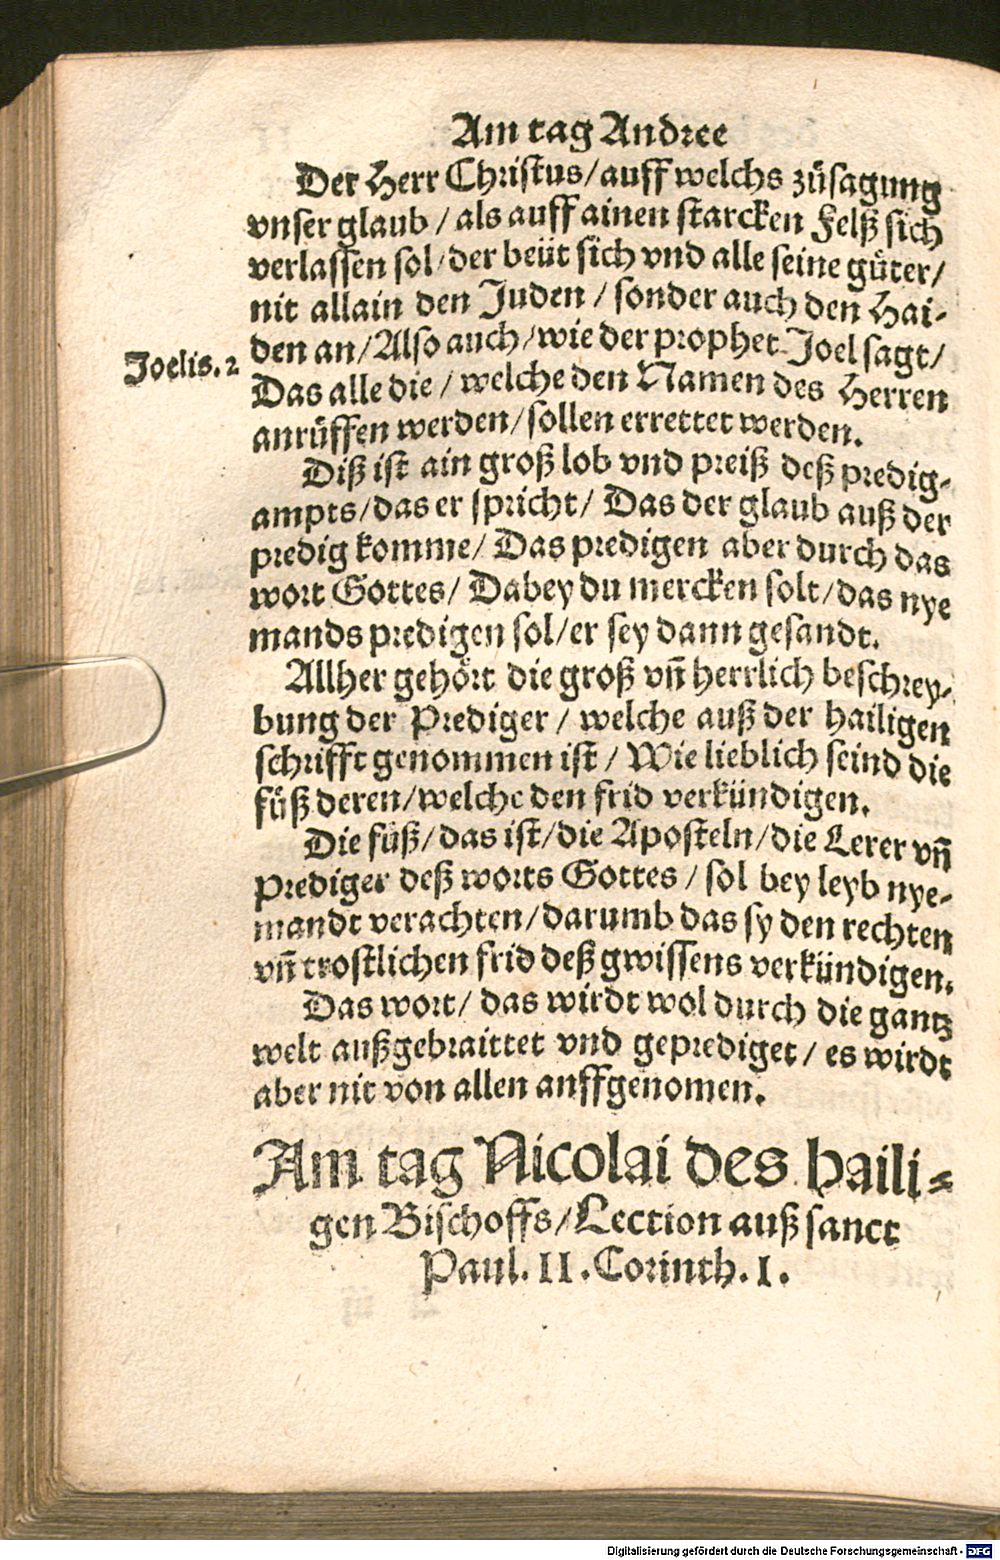 Am tag Andree
Der Herr Christus/auff welchs zůsagung
vnser glaub / als auff ainen starcken Felß sich
verlassen sol/der beüt sich vnd alle seine gůter/
nit allain den Juden / sonder auch den Hai-
den an/Also auch/wie der prophet Joel sagt/
Joelis. 2
Das alle die / welche den Namen des Herren
anrůffen werden/sollen errettet werden.
Diß ist ain groß lob vnd preiß deß predig-
ampts/das er spricht/ Das der glaub auß der
predig komme/ Das predigen aber durch das
wort Gottes/ Dabey du mercken solt/das nye
mands predigen sol/er sey dann gesandt.
Allher gehört die groß vñ herrlich beschrey-
bung der Prediger / welche auß der hailigen
schrifft genommen ist / Wie lieblich seind die
fůß deren/welche den frid verkündigen.
Die fůß/das ist/die Aposteln/die Lerer vñ
Prediger deß worts Gottes / sol bey leyb nye-
mandt verachten/darumb das sy den rechten
vñ trostlichen frid deß gwissens verkündigen.
Das wort/ das wirdt wol durch die gantz
welt außgebraittet vnd geprediget / es wirdt
aber nit von allen anffgenomen.
Am tag Nicolai des haili-
gen Bischoffs/Lection auß sanct
Paul. II. Corinth. I.
Digitalisierung gefördert durch die Deutsche Forschungsgemeinschaft - DFG